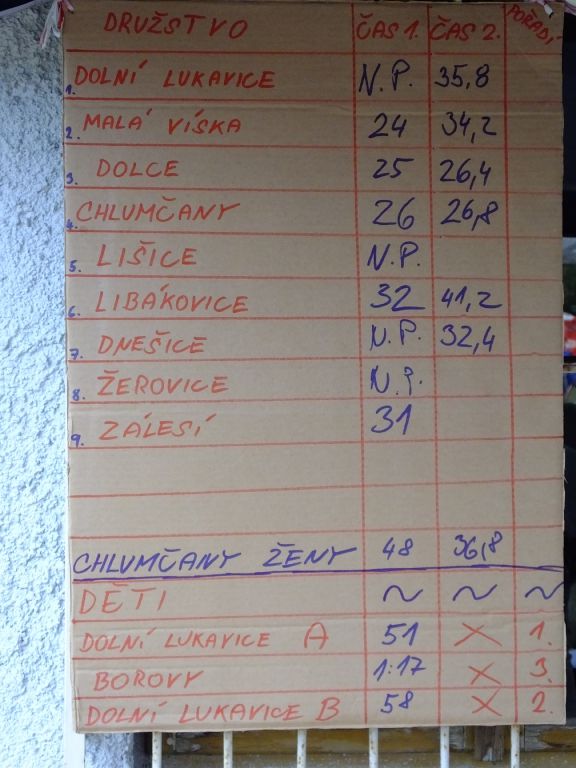 DRUŽSTVO ČAS 1. ČAS 2. POŘADÍ
1. DOLNÍ LUKAVICE N.P. 35,8
2. MALÁ VÍSKA 24 34,2
3. DOLCE 25 26,4
4. CHLUMČANY 26 26,8
5. LIŠICE N.P.
6. LIBÁKOVICE 32 41,2
7. DNEŠICE N.P. 32,4
8. ŽEROVICE N.P.
9. ZÁLESÍ 31
CHLUMČANY ŽENY 48 36,8
DĚTI ~ ~ ~
DOLNÍ LUKAVICE A 51 X 1.
BOROVY 1:17 X 3.
DOLNÍ LUKAVICE B 58 X 2.